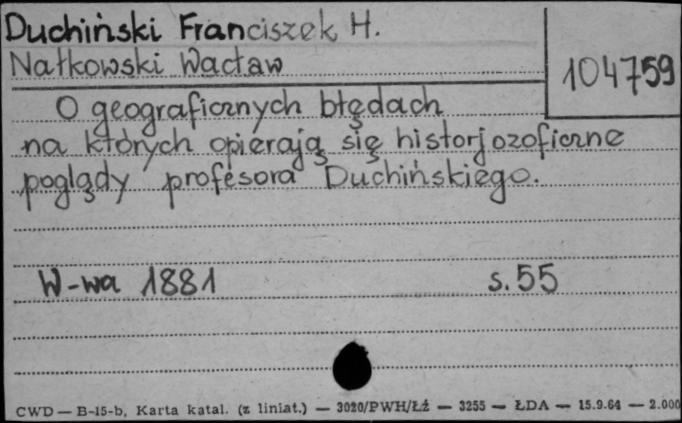 Duchiński Franciszek H.
Nałkowski Wacław
104759
O geograficznych błędach
na których opierają się historjozoficzne
poglądy profesora Duchińskiego.
W-wa 1881 s. 55
CWD — B-15-b, Karta katal. (z liniat.) — 3020/PWH/ŁŹ — 3255 — ŁDA — 15.9.64 — 2.000